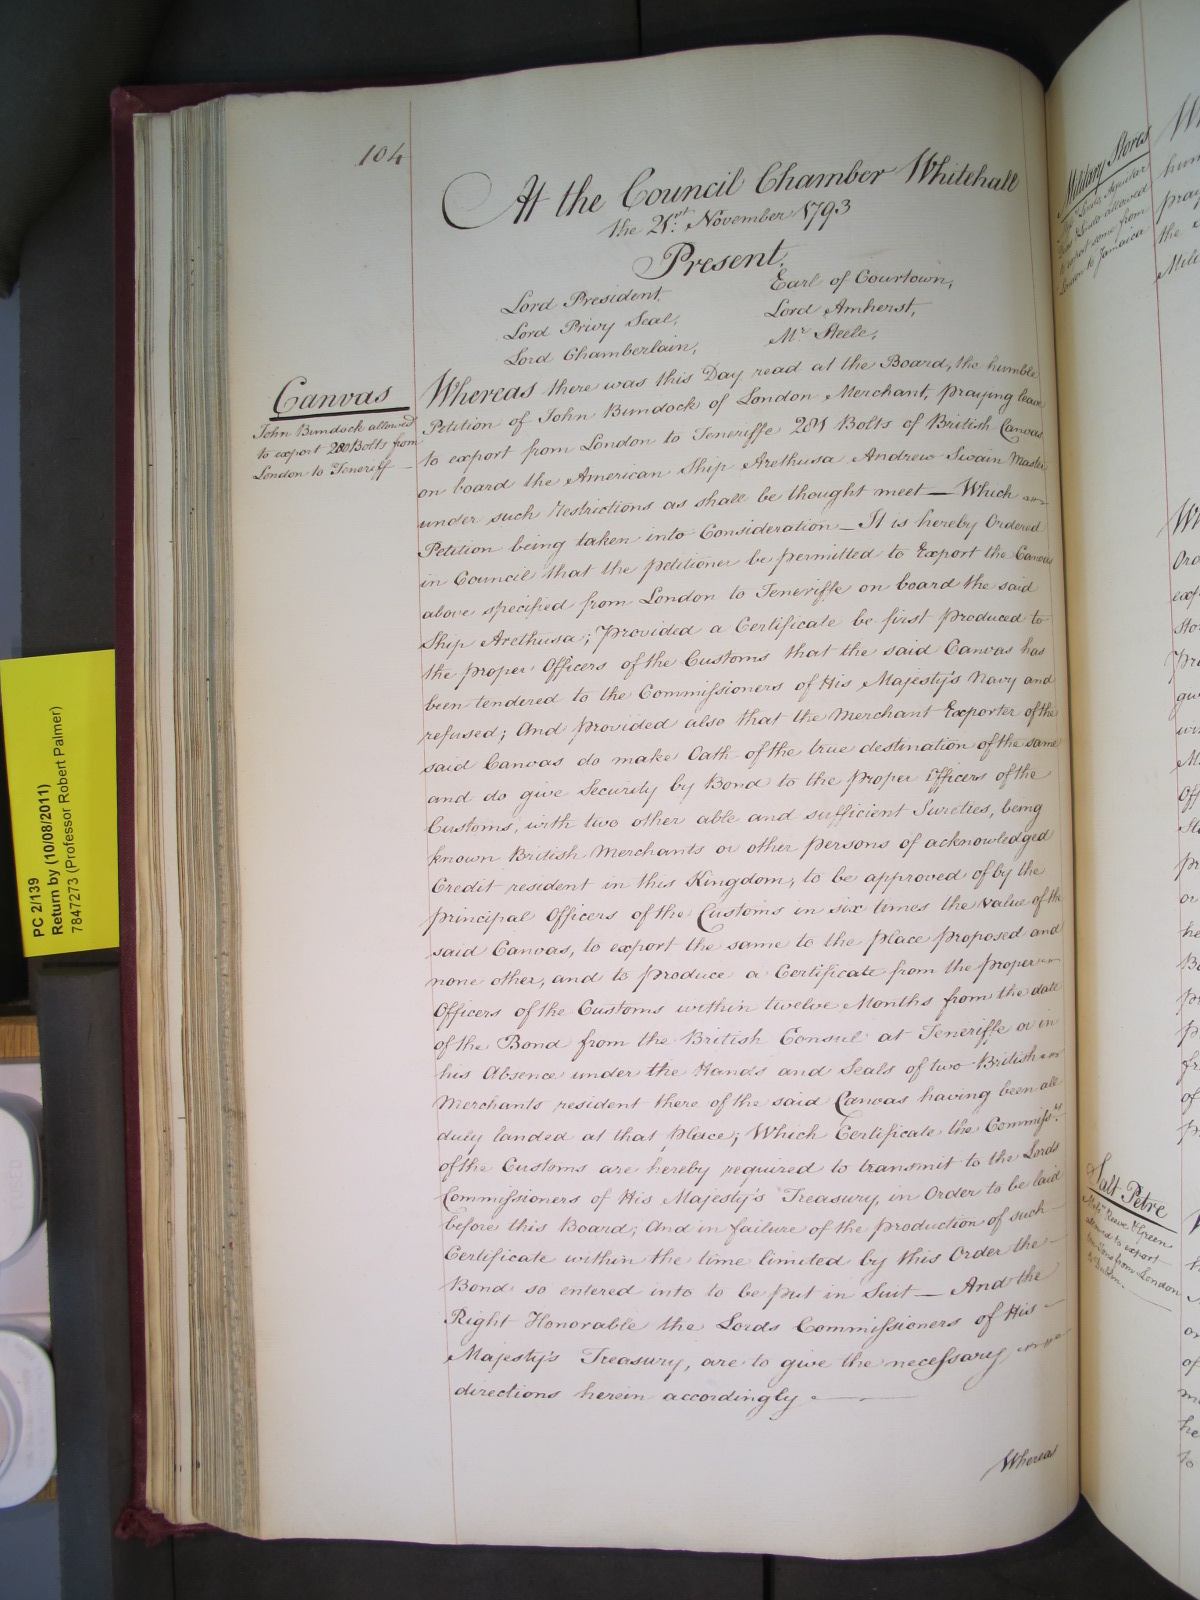 104
At the Council Chamber Whitehall
the 21st. November 1793
Present.
Lord President,
Lord Privy Seal,
Lord Chamberlain,
Earl of Courtown,
Lord Amherst,
Mr Steele,
Canvas
John Bundock allowed
to export 280 Bolts from
London to Teneriff
Whereas there was this Day read at the Board, the humble
Petition of John Bundock of London Merchant, praying leave
to export from London to Teneriffe 281 Bolts of British Canvas
on board the American Ship Arethusa Andrew Swain Master
under such restrictions as shall be thought meet — Which
Petition being taken into Consideration — It is hereby Ordered
in Council that the petitioner be permitted to Export the Canvas
above specified from London to Teneriffe on board the said
Ship Arethusa; Provided a Certificate be first produced to
the proper Officers of the Customs that the said Canvas has
been tendered to the Commissioners of His Majesty's Navy and
refused; And provided also that the Merchant Exporter of the
said Canvas do make Oath of the true destination of the same
and do give Security by Bond to the proper Officers of the
Customs, with two other able and sufficient Sureties, being
known British Merchants or other persons of acknowledged
Credit resident in this Kingdom, to be approved of by the
principal Officers of the Customs in six times the value of the
said Canvas, to export the same to the place proposed and
none other, and to produce a Certificate from the proper
Officers of the Customs within twelve Months from the date
of the Bond from the British Consul at Teneriffe or in
his Absence under the Hands and Seals of two British
Merchants resident there of the said Canvas having been all
duly landed at that place; Which Certificate the Commissrs.
of the Customs are hereby required to transmit to the Lords
Commissioners of His Majesty's Treasury, in Order to be laid
before this Board; And in failure of the production of such
Certificate within the time limited by this Order the
Bond so entered into to be put in Suit — And the
Right Honorable the Lords Commissioners of His
Majesty's Treasury, are to give the necessary
directions herein accordingly
Whereas
PC 2/139
Return by (10/08/2011)
7847273 (Professor Robert Palmer)
Military Stores
allowed
to export some from
London to Jamaica
Salt Petre
Reeve & Green
allowed to export
from London
to Dublin